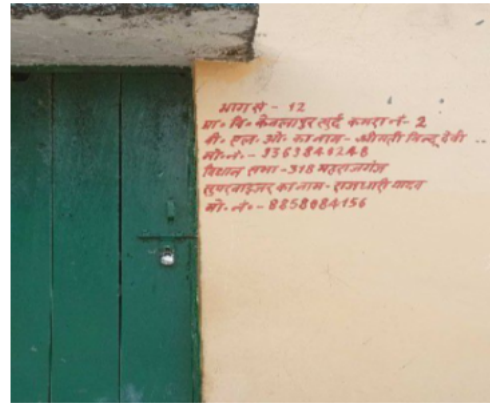 भाग सं - 12
प्रा॰ वि॰ केवलापुर खुर्द कमरा नं- 2
बी॰ एल॰ ओ॰ का नाम - श्रीमती बिन्दू देवी
मो॰ नं॰ - 9369841248
विधान सभा - 318 महराजगंज
सुपरवाइजर का नाम - राजधारी यादव
मो॰ नं॰ - 8858084156